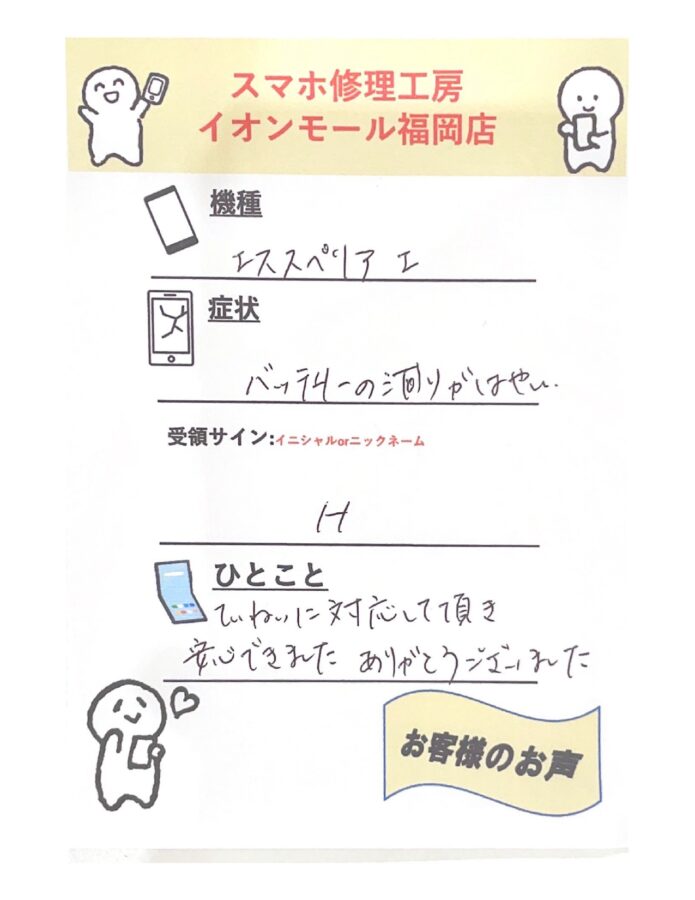 スマホ修理工房
イオンモール福岡店
機種
エススペリア エ
症状
バッテリーの減りがはやい.
受領サイン:イニシャルorニックネーム
H
ひとこと
ていねいに対応して頂き
安心できました ありがとうございました
お客様のお声